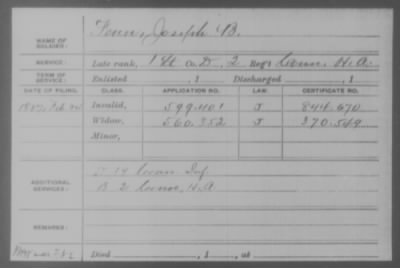 NAME OF SOLDIER: Fenn, Joseph B.
SERVICE: Late rank, 1 Lt Co. D, 2 Reg't Conn. H. A.
TERM OF SERVICE: Enlisted , 1 Discharged , 1
DATE OF FILING. CLASS. APPLICATION NO. LAW. CERTIFICATE NO.
1887, Feb Invalid, 599.401 J 844.670
Widow, 560.352 J 370.549
Minor,
ADDITIONAL SERVICES: D 19 Conn Inf.
B 2 Conn, H. A
REMARKS:
Died , 1 , at